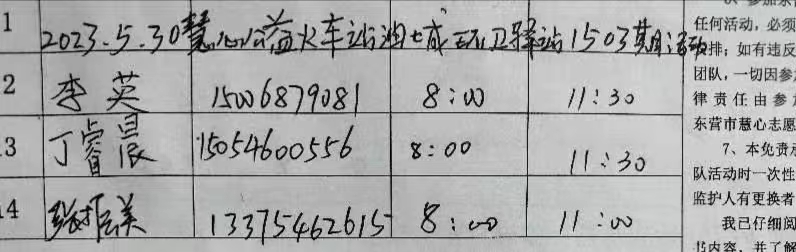 1 2023.5.30慧心公益火车站油城环卫驿站1503期活动
2 李英 15006879081 8:00 11:30
3 丁睿晨 15054600556 8:00 11:30
14 13375462615 8:00 11:00
任何活动，必须
排；如有违反
团队，一切因参
律责任由参
东营市慧心志愿
7、本免责
队活动时一次性
监护人有更换者
我已仔细阅
书内容，并了解